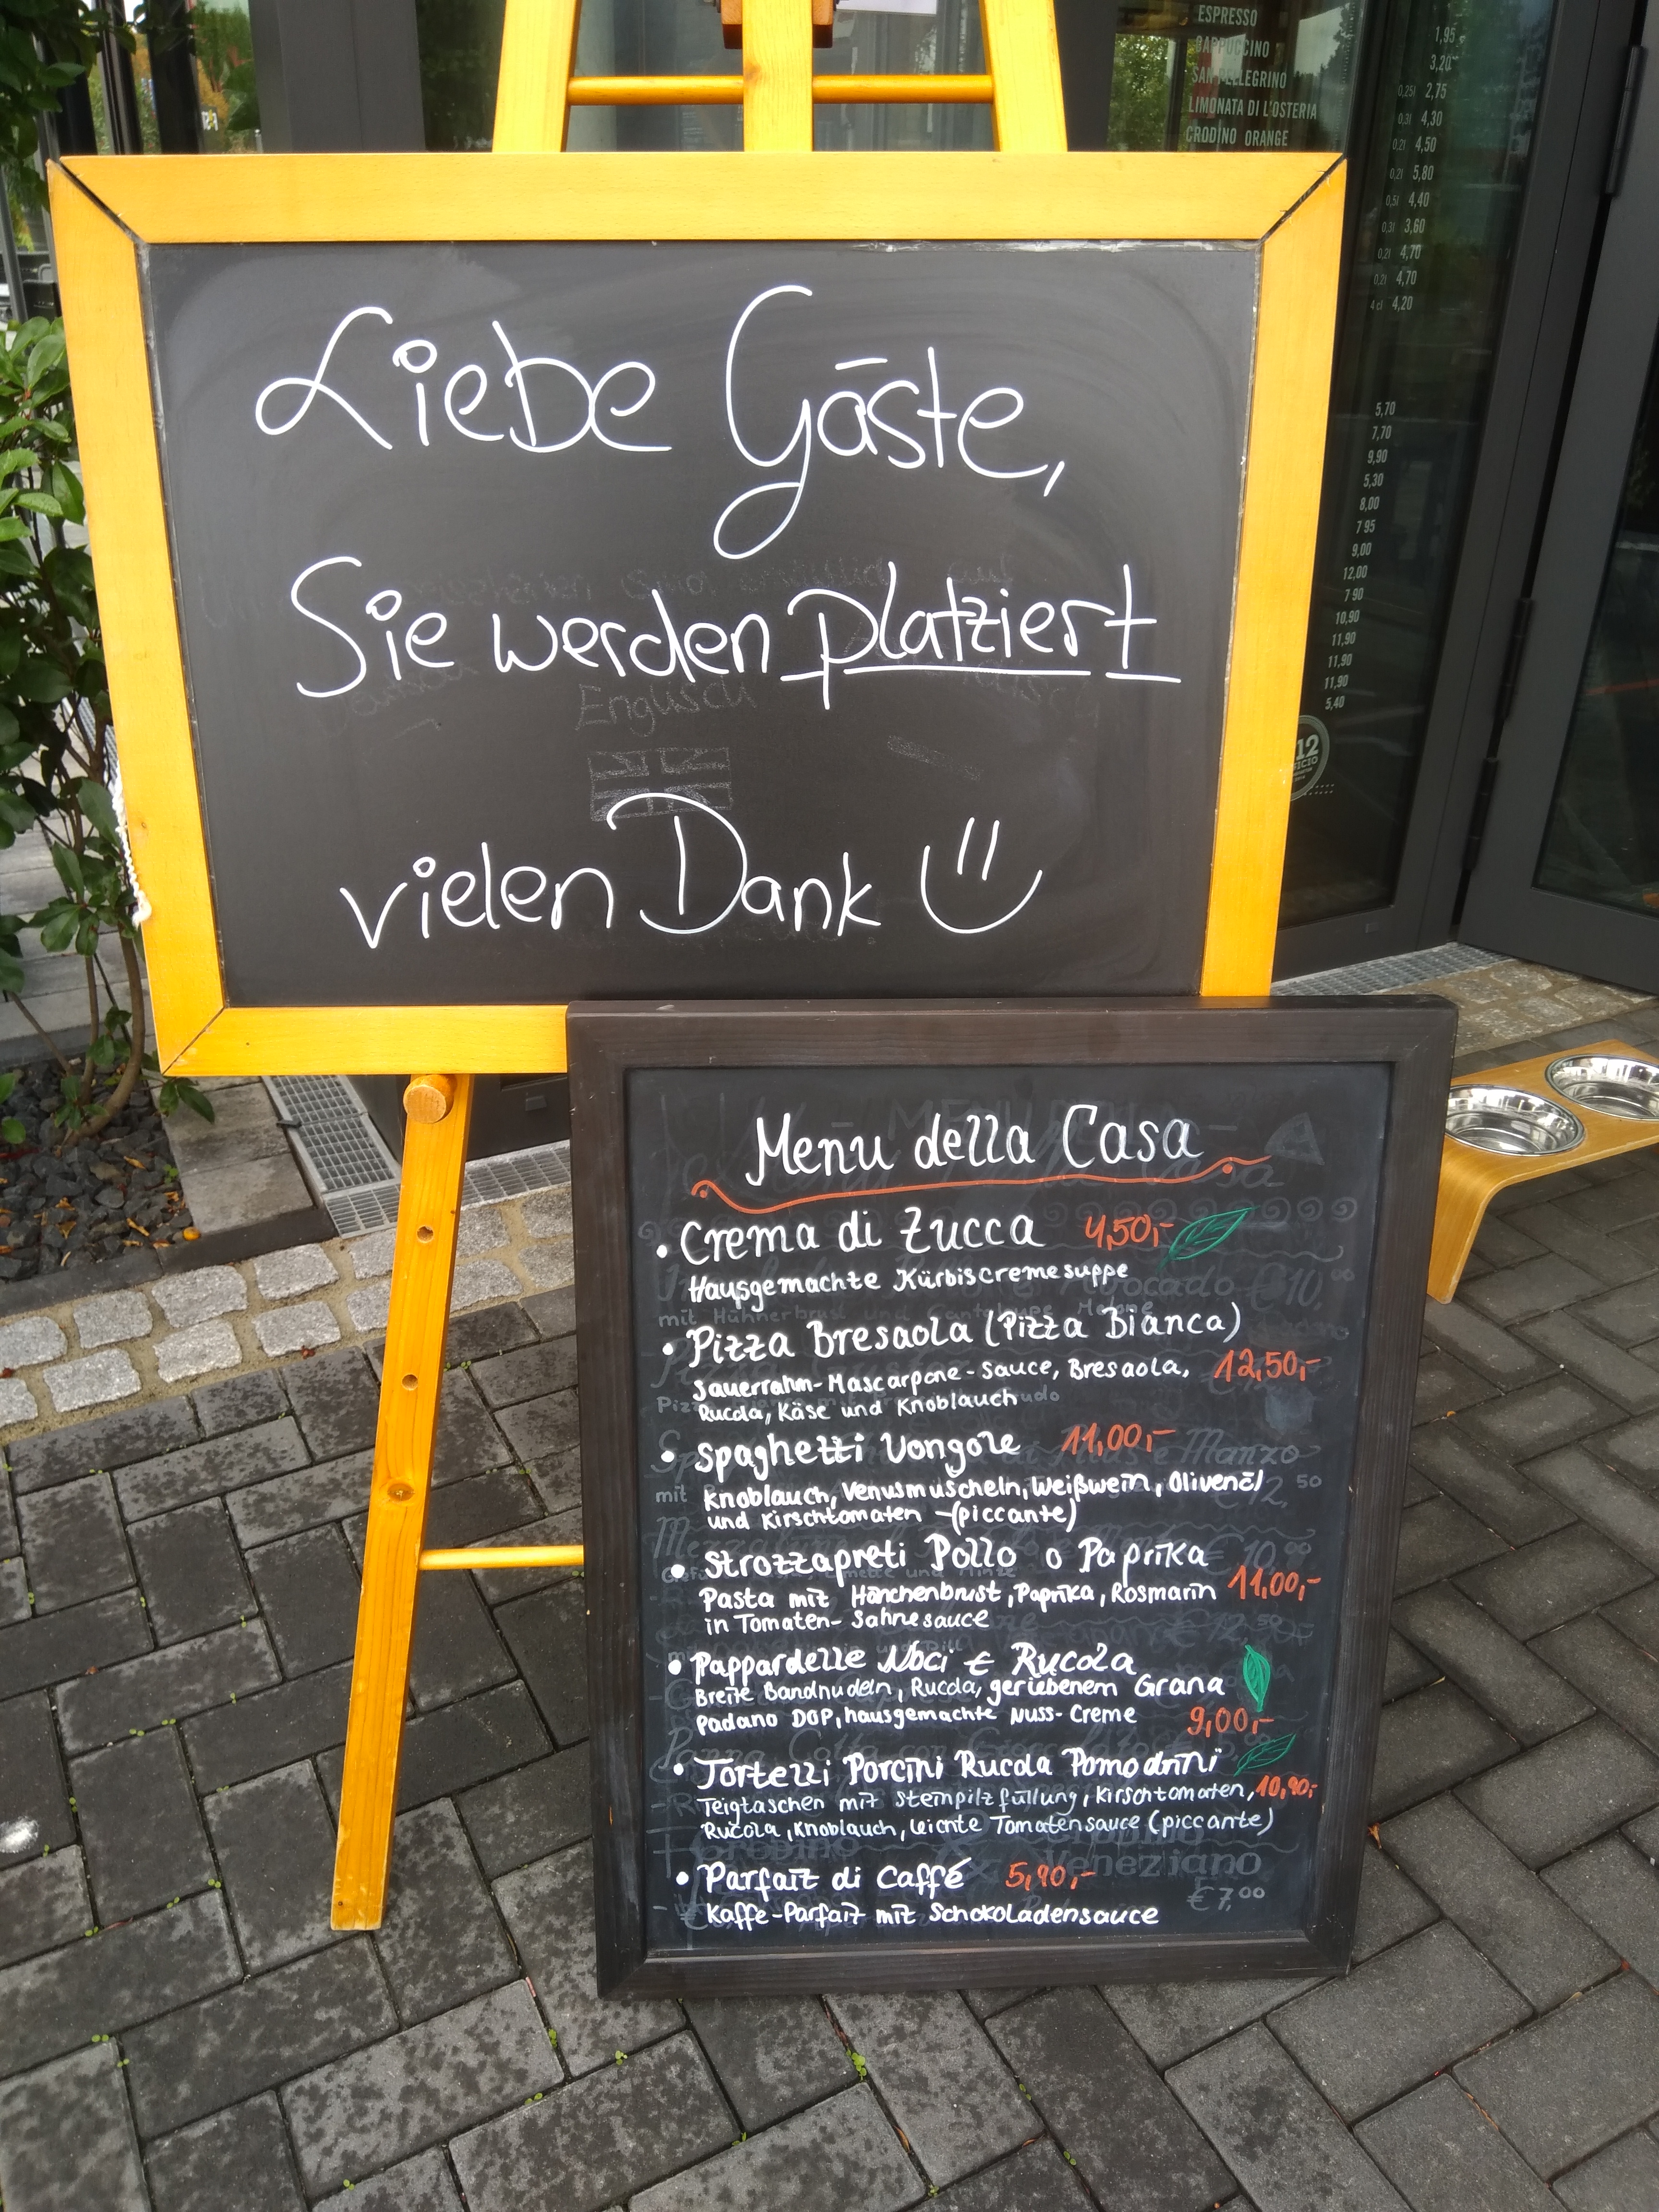 ESPRESSO 1,95
CAPPUCCINO 3,20
SAN PELLEGRINO 0,25l 2,75
LIMONATA DI L'OSTERIA 0,3l 4,30
CRODINO ORANGE 0,2l 4,50
0,2l 5,80
0,5l 4,40
0,3l 3,60
0,2l 4,70
0,2l 4,70
4 cl 4,20
5,70
7,70
9,90
5,30
8,00
7 95
9,00
12,00
7 90
10,90
11,90
11,90
11,90
5,40
12
Liebe Gäste,
Sie werden platziert
Englisch
vielen Dank
Menu della Casa
• Crema di Zucca 4,50,-
Hausgemachte Kürbiscremesuppe
• Pizza Bresaola (Pizza Bianca)
Sauerrahm-Mascarpone-Sauce, Bresaola, 12,50,-
Rucola, Käse und Knoblauch
• Spaghetti Vongole 11,00,-
Knoblauch, Venusmuscheln, Weißwein, Olivenöl
und Kirschtomaten -(piccante)
• Strozzapreti Pollo o Paprika
Pasta mit Hänchenbrust, Paprika, Rosmarin 11,00,-
in Tomaten- Sahnesauce
• Pappardelle Noci e Rucola
Breite Bandnudeln, Rucola, geriebenem Grana
Padano DOP, hausgemachte Nuss-Creme 9,00,-
• Tortelli Porcini Rucola Pomodrini
Teigtaschen mit Steinpilzfüllung, Kirschtomaten, 10,90,-
Rucola, Knoblauch, leichte Tomatensauce (piccante)
• Parfait di Caffé 5,90,-
Kaffe-Parfait mit Schokoladensauce
Veneziano
€ 7,00